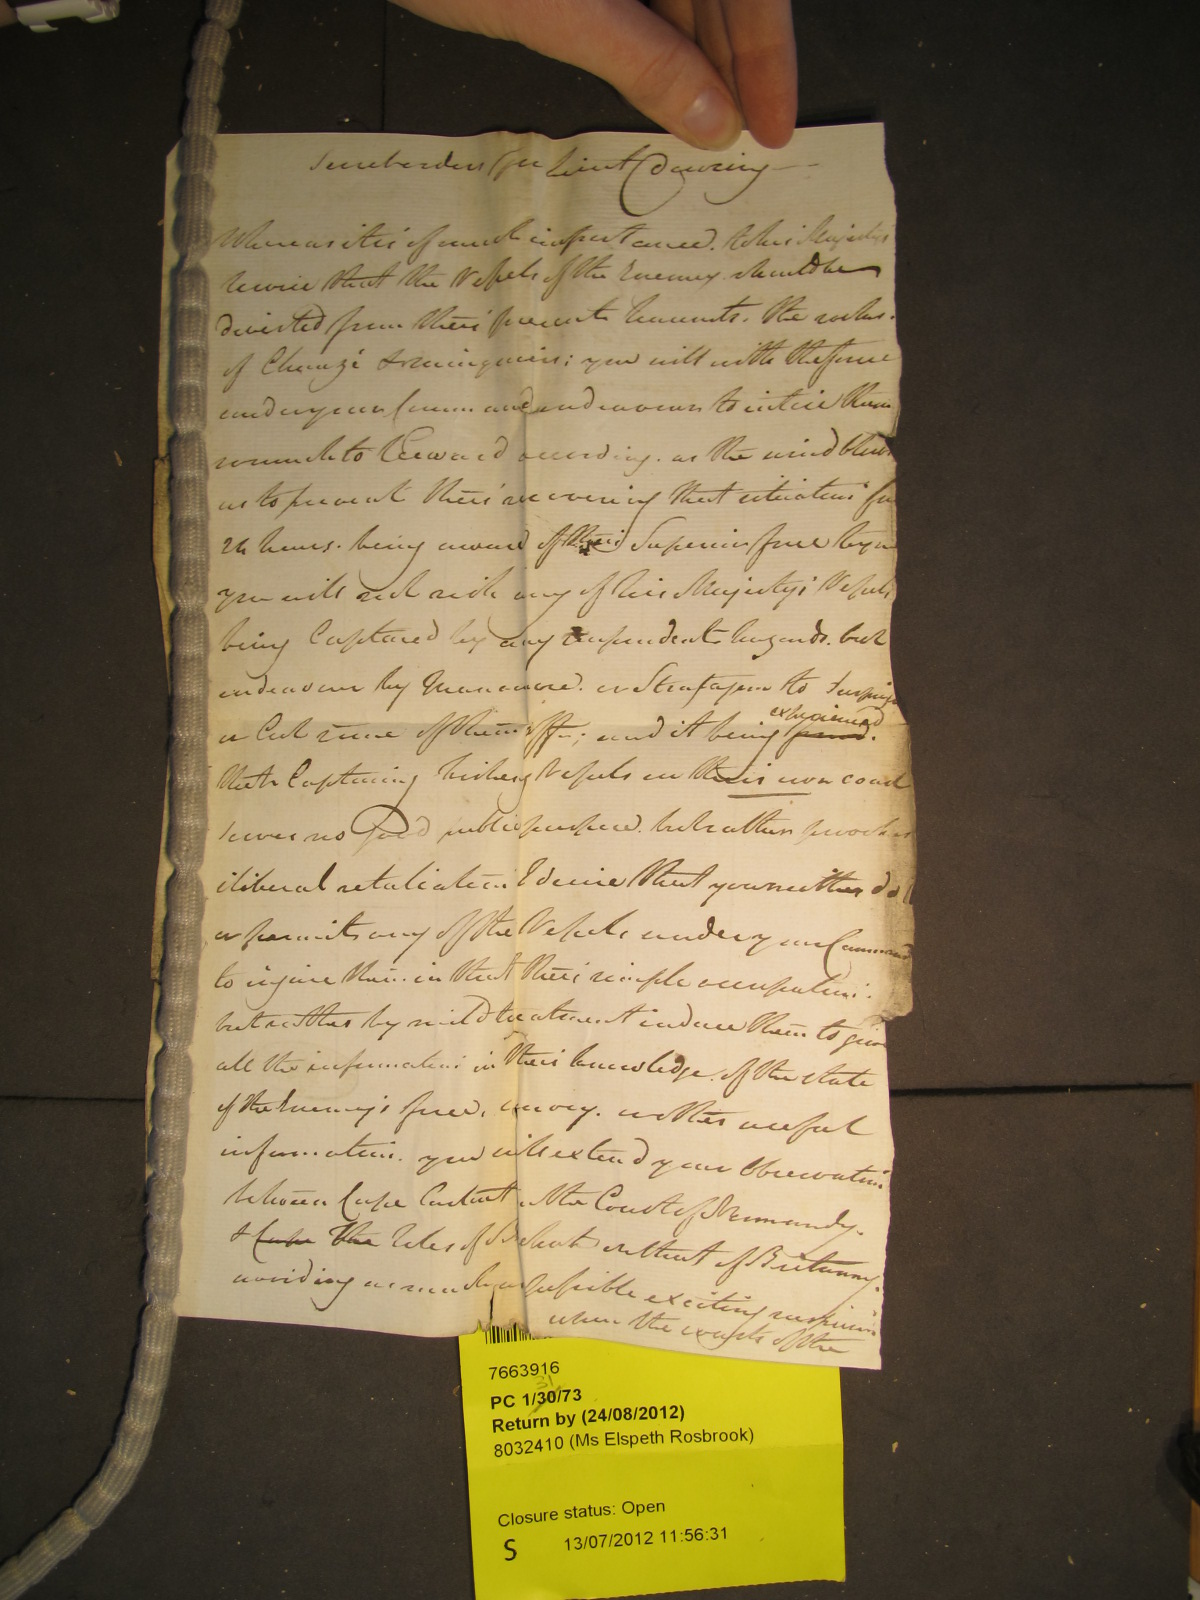 Secret orders for Lieut Dowsing
Whereas it is of much importance to his Majestys
service that the Vessels of the Enemy should be
diverted from their present haunts. the rocks
of Chauzé & Minquiers; you will with the force
under your Command endeavour to intice them
so much to Leeward according as the wind blows
as to prevent their recovering that situation for
24 hours. being aware of their Superior force
you will not risk any of his Majestys Vessels
being Captured by any imprudent hazards. but
endeavour by Manœuvre or Stratagem to Surprize
or Cut some of them off; and it being experienced
that Capturing fishing Vessels on their own coast
serves no good public purpose. but rather provokes
iliberal retaliation I desire that you neither do
or permit any of the Vessels under your Command
to injure them in that their simple occupation.
but rather by mild treatment induce them to give
all the information in their knowledge of the state
of the Enemy's force, convoy. or other useful
information. you will extend your Observation
between Cape Carteret on the Coast of Normandy.
& Cape The Isles of Brehat on that of Britanny.
avoiding as much as possible exciting suspicion
when the coasts of the
7663916
31
PC 1/30/73
Return by (24/08/2012)
8032410 (Ms Elspeth Rosbrook)
Closure status: Open
S 13/07/2012 11:56:31